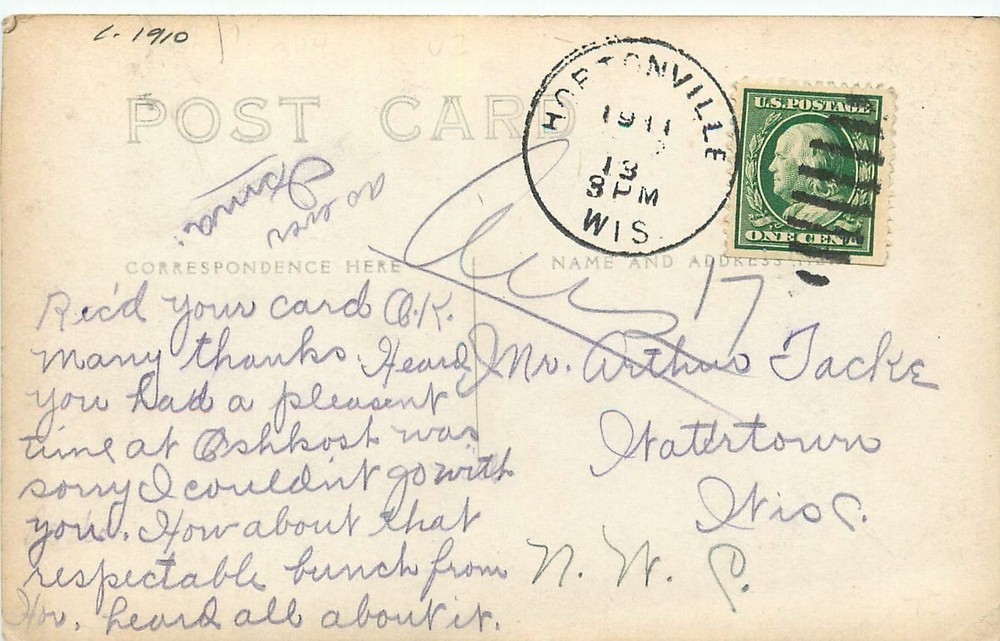 c. 1910
POST CARD
HORTONVILLE
1911
13
8 PM
WIS.
U.S. POSTAGE
ONE CENT
as ever
CORRESPONDENCE HERE
NAME AND ADDRESS
17
Rec'd your card O.K.
Many thanks. Heard
you had a pleasent
time at Oshkosh was
sorry I couldn't go with
you. How about that
respectable bunch from
Hor. heard all about it.
Mr. Arthur Tacke
Watertown
Wisc.
N. W. C.